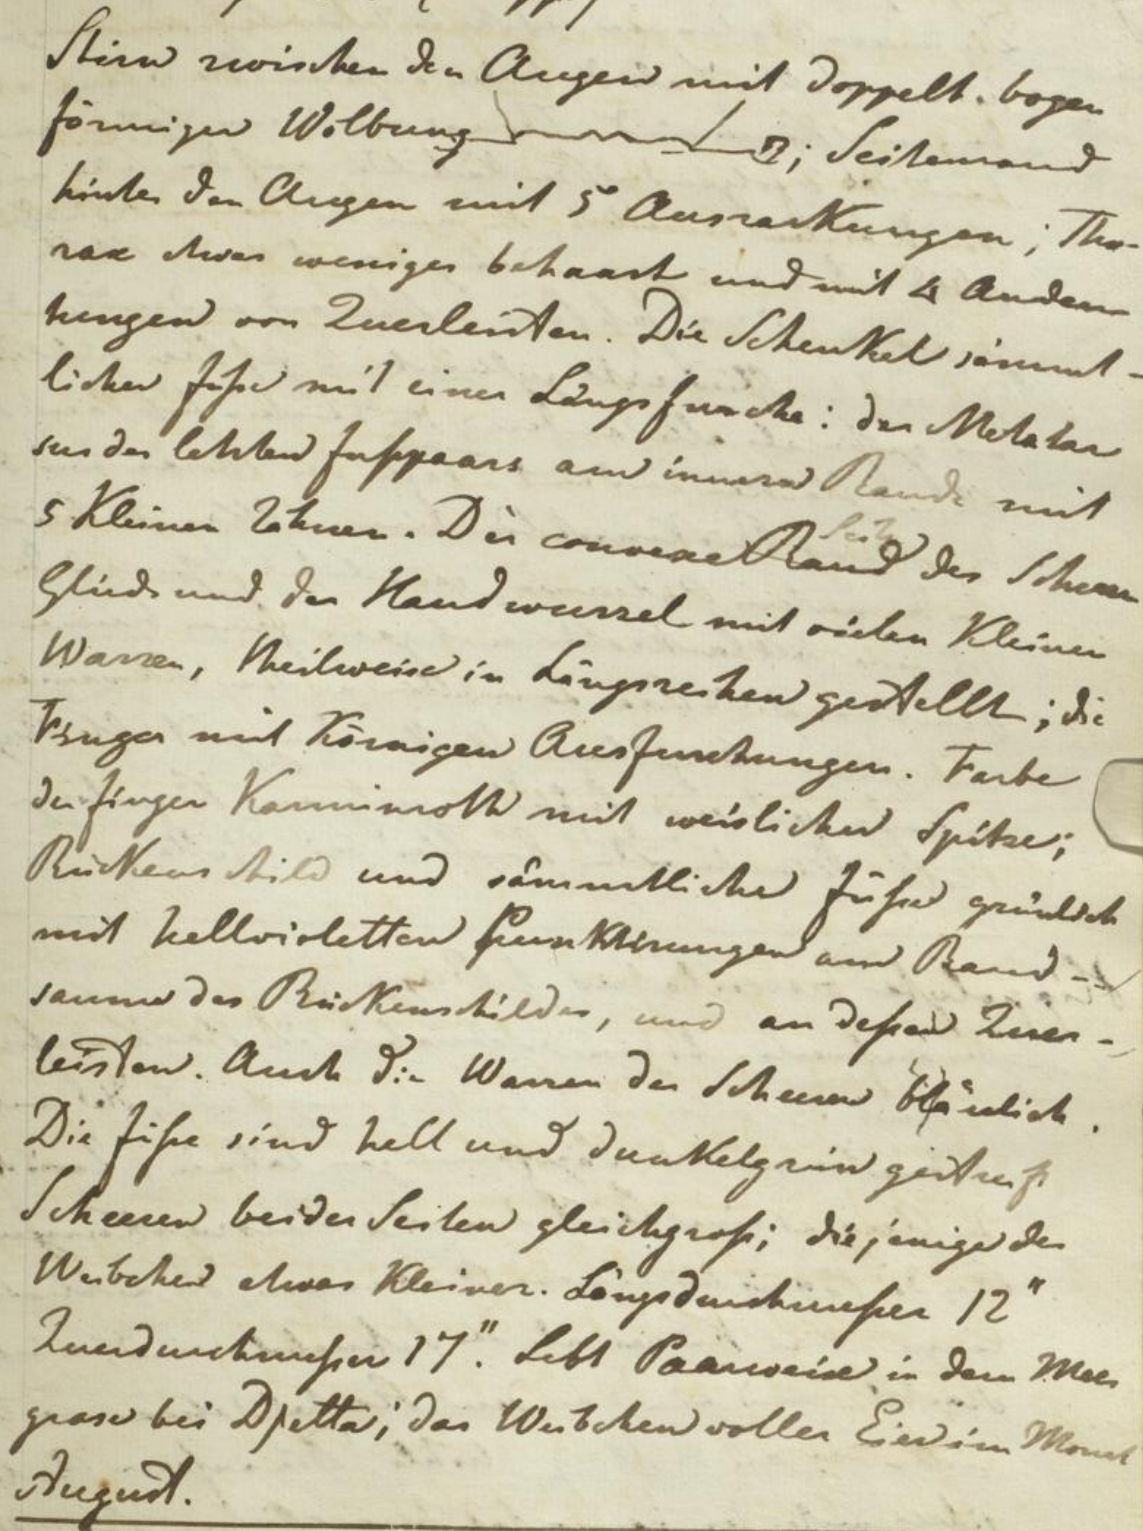 Stirn zwischen den Augen mit doppelt. bogen
förmiger Wölbung ; Seitenrand
hinter den Augen mit 5 Auszackungen; Tho-
rax etwas weniger behaart und mit 4 Andeu
tungen von Querleisten. Die Schenkel sämmt-
licher Füße mit einer Längsfurche: der Metatar
sus des letzten Fußpaars am innern Rande mit
5 Kleinen Zähnen. Der convexe Rand des Scheeren
Glieds und der Handwurzel mit vielen Kleinen
Warzen, theilweise in Längsreihen gestellt; die
Finger mit Körnigen Ausfurchungen. Farbe
der Finger Karminroth mit weislicher Spitze;
Rückenschild und sämmtliche Füße grünlich
mit hellvioletten Punktirungen am Rand-
saume des Rückenschildes, und an deßen Quer-
leisten. Auch die Warzen der Scheeren bläulich.
Die Füße sind hell und dunkelgrün gestreift
Scheeren beider Seiten gleichgroß; diejenige des
Weibchen etwas Kleiner. Längsdurchmeßer 12"
Querdurchmeßer 17". Lebt Paarweise in dem Meer
grase bei Djetta; das Weibchen voller Eier im Monat
August.